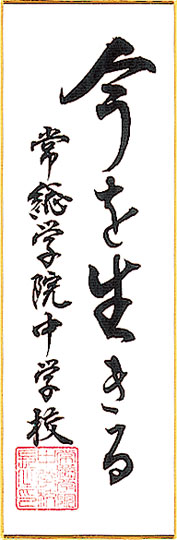 今を生きる
常総学院中学校